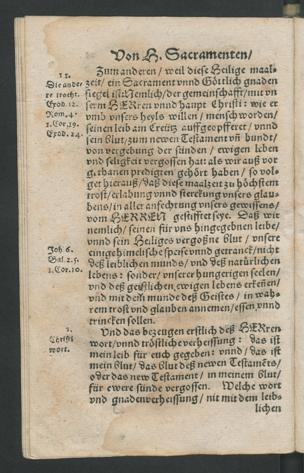 Von H. Sacramenten/
II.
Die ander
Exod. 12.
Rom. 4.
1. Cor. 10.
Exod. 24.
Zum anderen/ weil diese Heilige maal-
zeit/ ein Sacrament vnnd Göttlich gnaden
sigel ist: Nemlich/ der gemeinschafft/ mit vn
serm HERren vnnd haupt Christi: wie er
vmb vnsers heyls willen/ mensch worden/
seinen leib am Creütz auffgeopfferet/ vnnd
sein blut/ zum newen Testament vñ bundt/
von vergebung der sünden/ ewigen leben
vnd seligkeit vergossen hat: als wir auß vor
gethanen predigten gehört haben/ so vol-
get hierauß/ daß diese maalzeit zu höchstem
trost/ erlabung vnnd sterckung vnsers glau-
bens/ in aller anfechtung vnsers gewissens/
vom HERREN gestifftet seye. Daß wir
nemlich/ seinen für vns hingegebnen leibe/
vnnd sein Heiliges vergoßne blut/ vnsere
einige himelische speise vnnd getranck/ nicht
deß leiblichen munds/ vnd deß natürlichen
lebens: sonder/ vnserer hungerigen seelen/
vnd deß geistlichen, ewigen lebens erkeñen/
vnd mit dem munde deß Geistes/ in wah-
rem trost vnd glauben annemen/ essen vnnd
trincken sollen.
Joh 6.
1. Cor. 10.
1.
Christi
wort.
Vnd das bezeugen erstlich deß HERren
wort/ vnnd tröstliche verheissung: das ist
mein leib für euch gegeben: vnnd/ das ist
mein blut/ das blut deß newen Testamẽts/
oder das new Testament/ in meinem blut/
für ewere sünde vergossen. Welche wort
vnd gnadenverheissung/ nit mit dem leib-
lichen